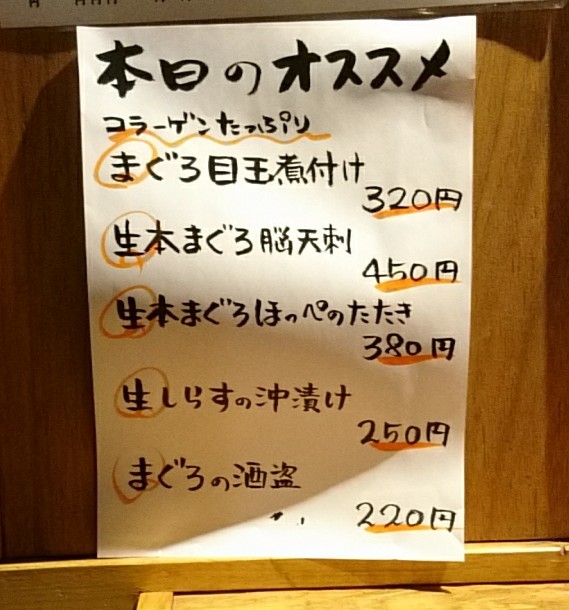 本日のオススメ
コラーゲンたっぷり
まぐろ目玉煮付け
320円
生本まぐろ脳天刺
450円
生本まぐろほっぺのたたき
380円
生しらすの沖漬け
250円
まぐろの酒盗
220円